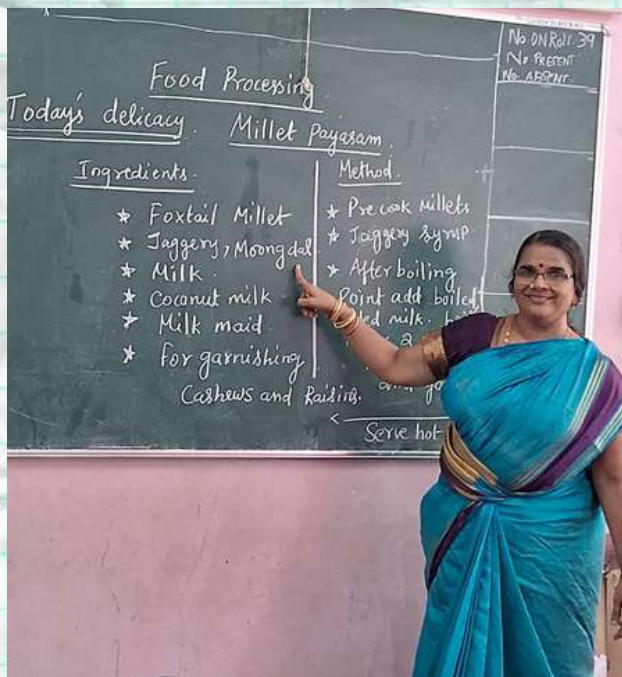 No ON Roll: 39
No PRESENT
No. ABSENT.
Food Processing
Today's delicacy. Millet Payasam.
Ingredients.
★ Foxtail Millet
★ Jaggery, Moong dal.
★ Milk.
★ Coconut milk
★ Milk maid
★ for garnishing
Cashews and Raisins.
Method.
★ Precook millets
★ Jaggery syrup.
★ After boiling
Point add boiled
milk.
Serve hot